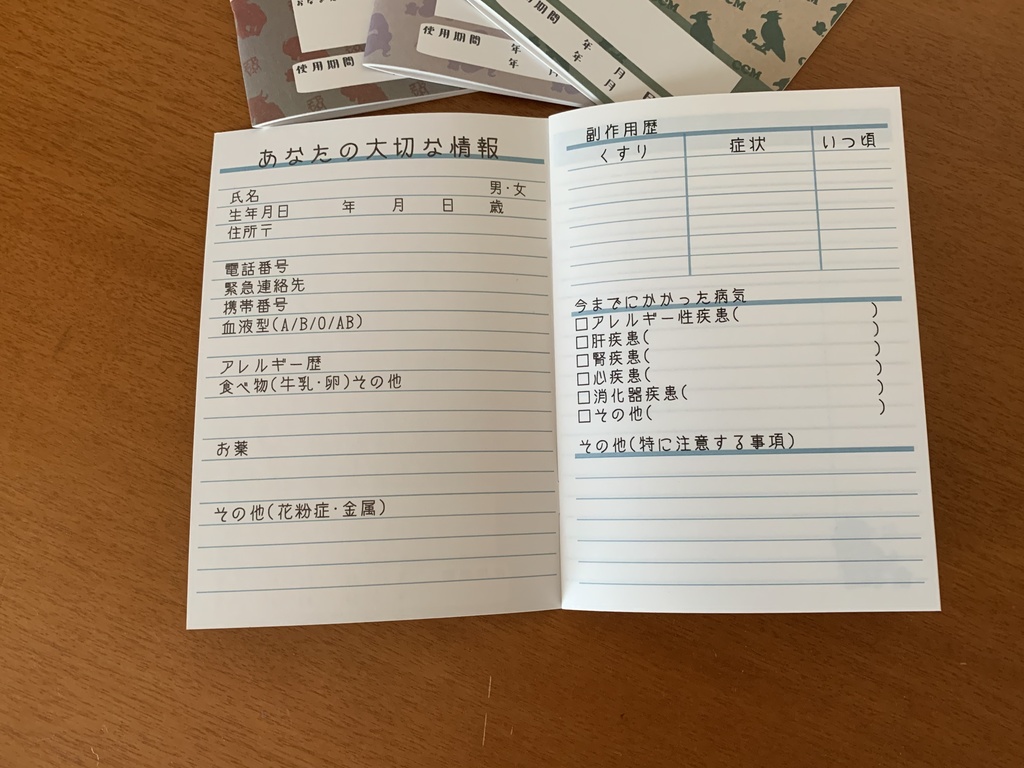 使用期間
使用期間
年
年
使用期間
年 月
年 月 日
CCM
CCM
あなたの大切な情報
氏名 男・女
生年月日 年 月 日 歳
住所〒
電話番号
緊急連絡先
携帯番号
血液型(A/B/O/AB)
アレルギー歴
食べ物(牛乳・卵)その他
お薬
その他(花粉症・金属)
副作用歴
くすり 症状 いつ頃
今までにかかった病気
□アレルギー性疾患( )
□肝疾患( )
□腎疾患( )
□心疾患( )
□消化器疾患( )
□その他( )
その他(特に注意する事項)